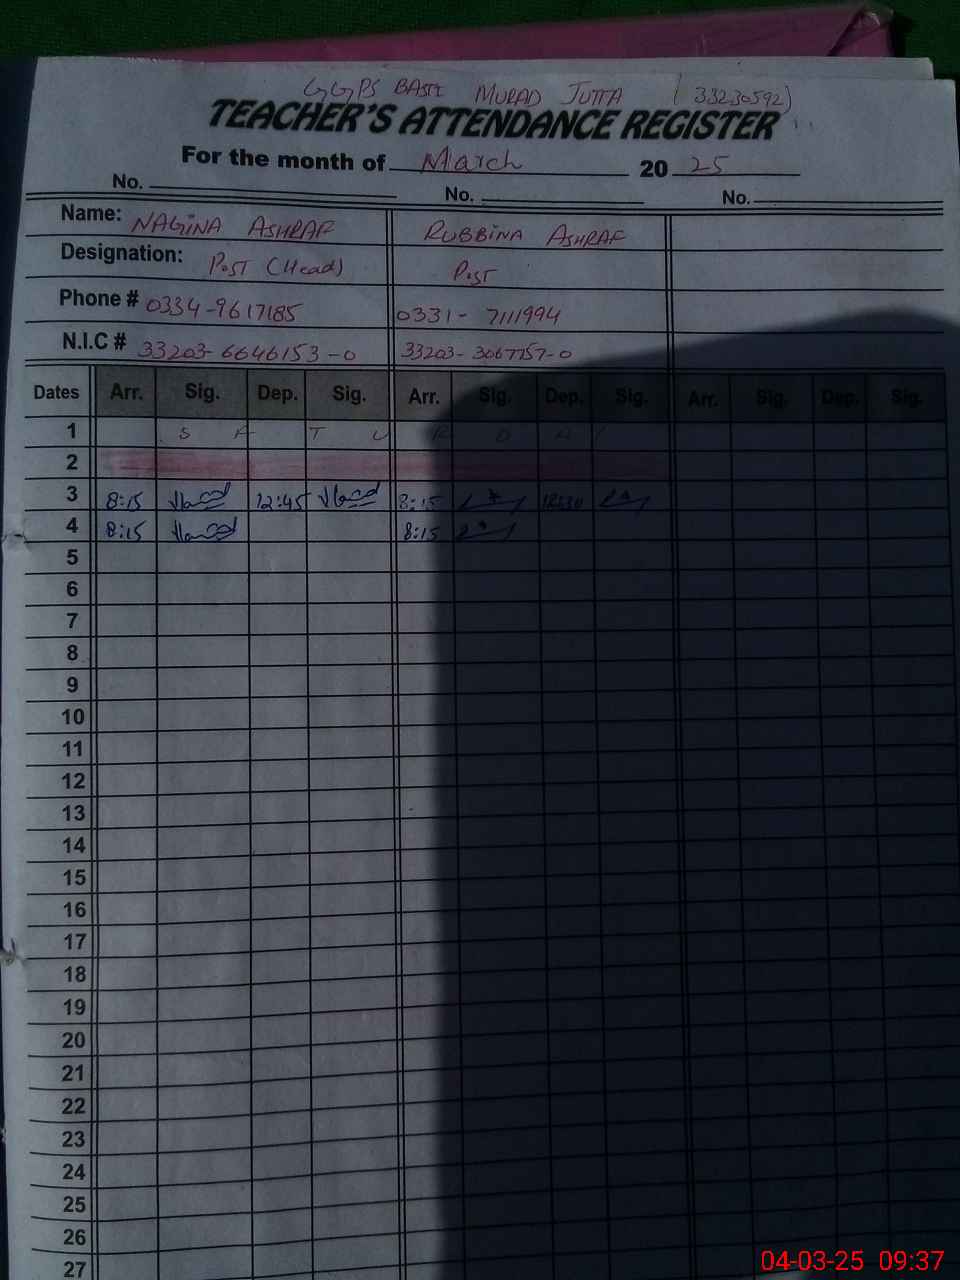 GGPS BASTI MURAD JUTTA (33230592)
TEACHER'S ATTENDANCE REGISTER
For the month of March 2025
No. No. No.
Name: NAGINA ASHRAF RUBBINA ASHRAF
Designation: PST (Head) PST
Phone # 0334-9617185 0331-7111994
N.I.C # 33203-6646153-0 33203-3067757-0
Dates Arr. Sig. Dep. Sig. Arr. Sig. Dep. Sig. Arr. Sig. Dep. Sig.
1 S A T U R D A Y
2
3 8:15 12:45 8:15
4 8:15 8:15
5
6
7
8
9
10
11
12
13
14
15
16
17
18
19
20
21
22
23
24
25
26
27
04-03-25 09:37